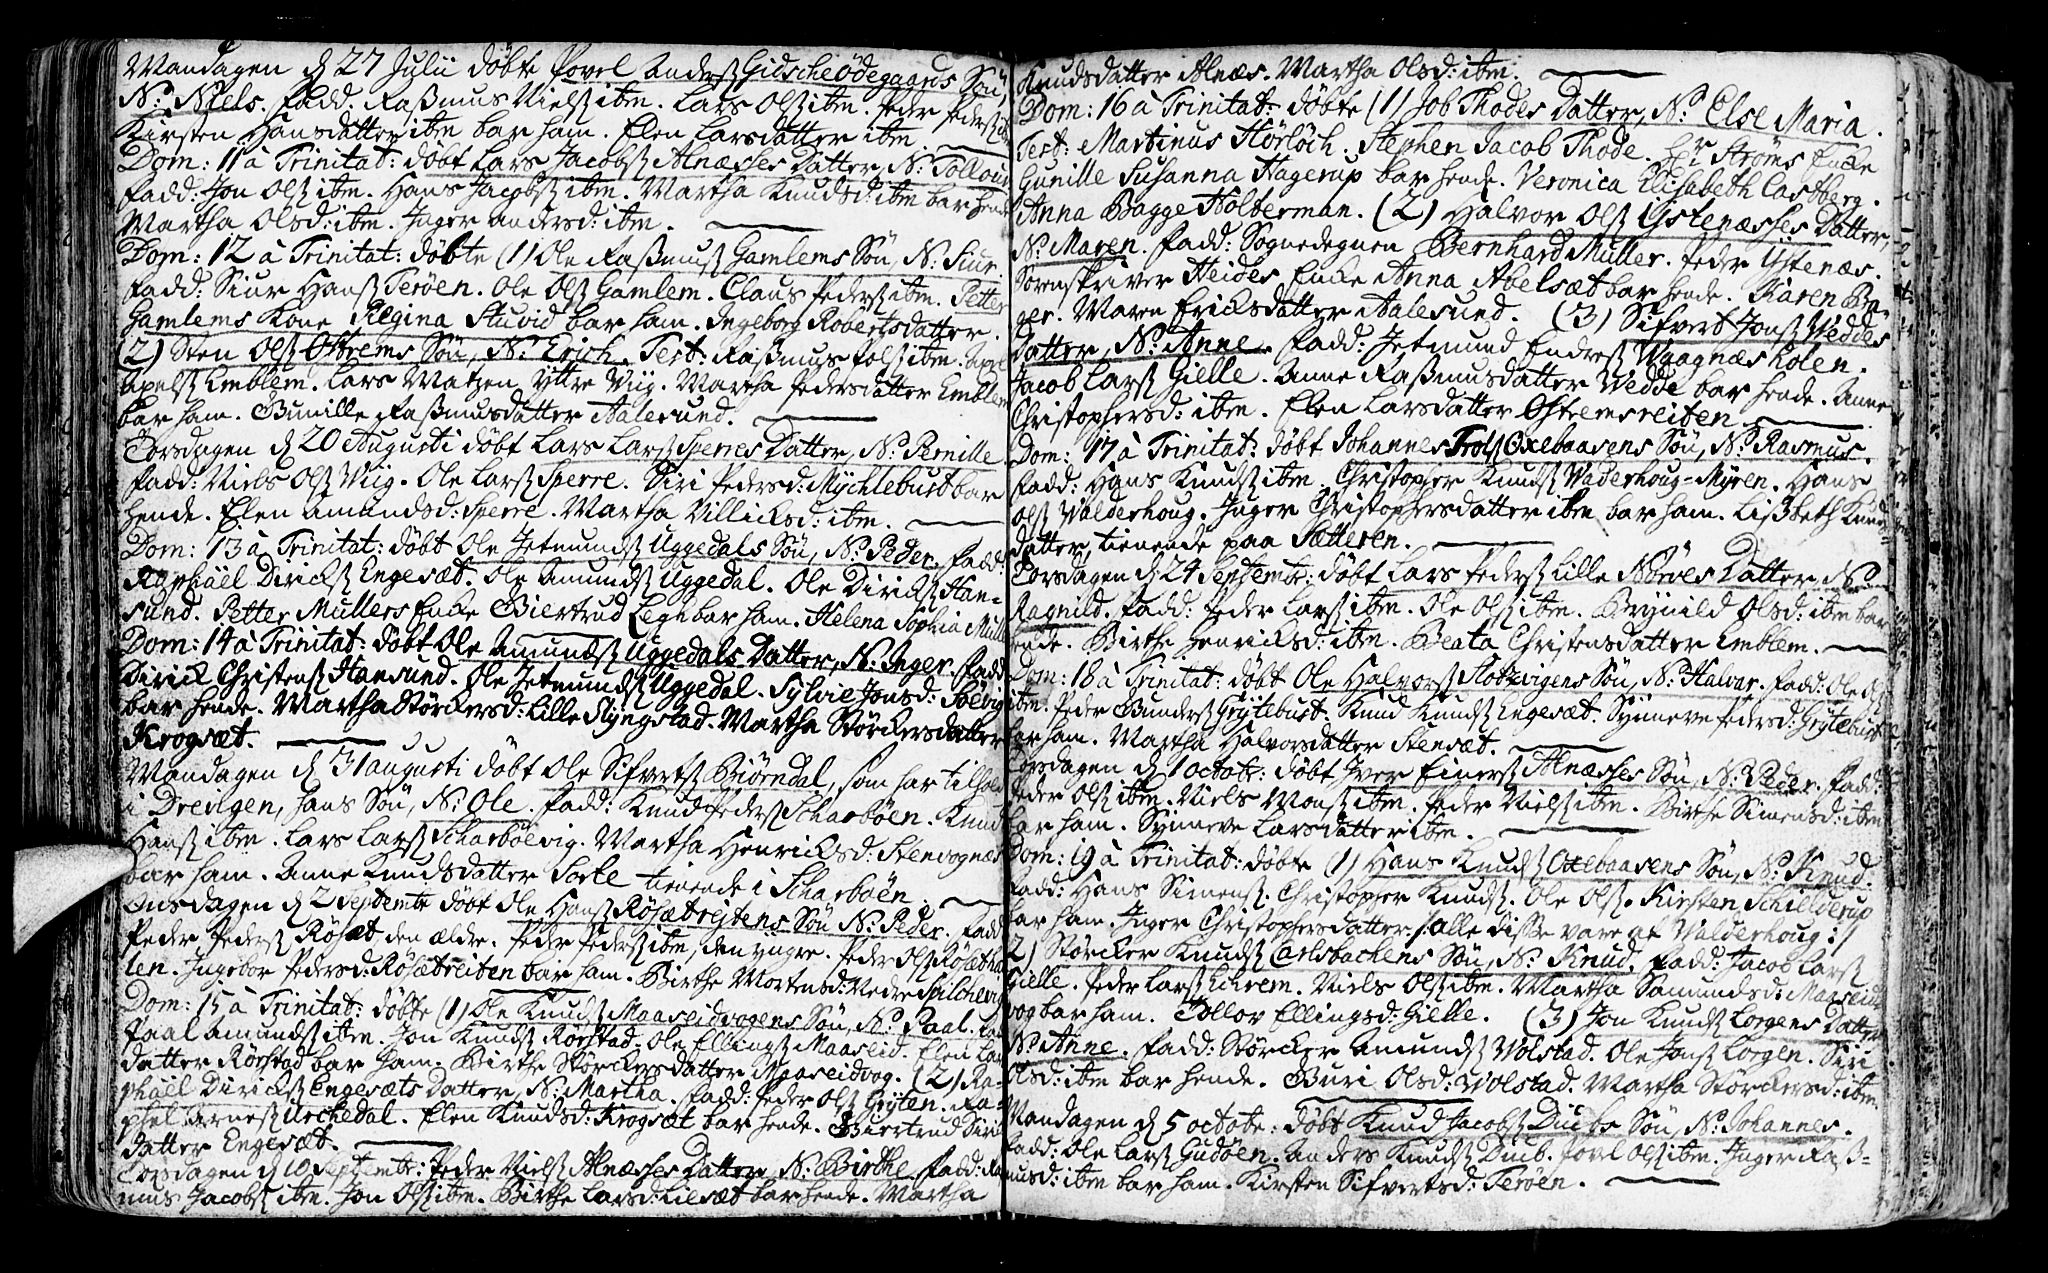 Mandagen d 27 Julii döbte Povel Anders Gidscheödegaards Sön,
N: Niels. Fadd. Rasmus Niels ibm. Lars Ols ibm. Peder Peders ibm
Kirsten Hansdatter ibm bar ham. Elen Larsdatter ibm.
Dom: 11 à Trinitat: döbt Lars Jacobs Alnæsses Datter, N: Tollou
Fadd: Jon Ols ibm. Hans Jacobs ibm. Martha Knudsd: ibm bar hende
Martha Olsd: ibm. Inger Andersd: ibm.
Dom: 12 à Trinitat: döbte (1) Ole Rasmus Gamlems Sön, N: Siur.
Fadd: Siur Hans Teröen. Ole Ols Gamlem. Claus Peders ibm. Petter
Gamlems Kone Regina Stuvid bar ham. Ingeborg Robertsdatter.
(2) Sten Ols Ostrems Sön, N: Erich. Test: Rasmus Pols ibm. Axel
Axels Emblem. Lars Matzen Yttre Viig. Martha Pedersdatter Emblem
bar ham. Gunille Rasmusdatter Aalesund.
Torsdagen d 20 Augusti döbt Lars Lars Sperres Datter, N: Pernille
Fadd: Niels Ols Viig. Ole Lars Sperre. Siri Pedersd: Mychlebust bar
hende. Elen Amundsd: Sperre. Martha Villichsd: ibm.
Dom: 13 à Trinitat: döbt Ole Jetmunds Uggedals Sön, N: Peder. Fadd:
Raphäel Dirichs Engesæt. Ole Amunds Uggedal. Ole Dirichs Han-
sund. Petter Mullers Enke Giertrud Legh bar ham. Helena Sophia Mulle
Dom: 14 à Trinitat: döbt Ole Amunds Uggedals Datter, N: Inger. Fadd
Dirich Christens Hansund. Ole Jetmunds Uggedal. Sylvie Jonsd: Solvig
bar hende. Martha Störchersd: Lille Slyngstad. Martha Störchersdatter
Krogsæt.
Mandagen d 31 Augusti döbt Ole Sifverts Biörndal, som har tilhold
i Drevlgen, hans Sön, N: Ole. Fadd: Knud Peders Scharböen. Knud
Hans ibm. Lars Lars Scharböevig. Martha Henrichsd: Stenvognæs
bar ham. Anne Knudsdatter Sorte tienende i Scharböen.
Onsdagen d 2 Septembr döbt Ole Hans Rösætreitens Sön N: Peder. Fadd
Peder Peders Rösæt, den ældre. Peder Peders ibm, den yngre. Peder Ols Rösætrei
ten. Ingebor Pedersd: Rösætreiten bar ham. Birthe Mortensd: Nedre Spilchevig
Dom: 15 à Trinitat: döbte (1) Ole Knuds Maaseidvogens Sön, N: Paal. Fad
Paal Amunds ibm. Jon Knuds Rörstad. Ole Ellings Maaseid. Elen Lars
datter Rörstad bar ham. Birthe Störchersdatter Maaseidvog. (2) Ra-
phäel Dirichs Engesæts Datter, N: Martha. Fadd: Peder Ols Gryten. Ra-
phel Arnes Uechedal. Elen Knudsd: Krogsæt bar hende. Giertrud Siri
datter Engesæt.
Torsdagen d 10 Septembr: Peder Niels Alnæsses Datter, N: Birthe. Fadd: Ras
mus Jacobs ibm. Jon Ols ibm. Birthe Larsd: Liesæt bar hende. Martha
Knudsdatter Alnæs. Martha Olsd: ibm.
Dom: 16 à Trinitat: döbte (1) Job Thodes Datter, N: Else Maria.
Test: Martinus Hörlöch. Stephen Jacob Thode. Hr Ströms Enke
Gunille Susanna Hagerup bar hende. Veronica Elisabeth Castberg.
Anna Bagge Holberman. (2) Halvor Ols Ystenæsses Datter,
N: Maren. Fadd: Sognedegnen Bernhard Muller. Peder Ystenæs.
Sorenskriver Heides Enke Anna Abelsæt bar hende. Karen Ba-
ger. Maren Erichsdatter Aalesund. (3) Sifvert Jons Veddes
Datter, N: Anne. Fadd: Jetmund Endres Vaagnæs holen.
Jacob Lars Gielle. Anne Rasmusdatter Vedde bar hende. Anne
Christophersd: ibm. Elen Larsdatter Ostremsreiten.
Dom: 17 à Trinitat: döbt Johannes Trols Oxebaasens Sön, N: Rasmus.
Fadd: Hans Knuds ibm. Christopher Knuds Valderhoug-Myren. Hans
Ols Valderhoug. Inger Christophersdatter ibm bar ham. Lisbeth Knuds
datter, tienende paa Sætteren.
Torsdagen d 24 Septembr: döbt Lars Peders Lille Nörves Datter, N:
Ragnild. Fadd: Peder Lars ibm. Ole Ols ibm. Brynild Olsd: ibm bar
hende. Birthe Henrichsd: ibm. Beata Christensdatter Emblem.
Dom: 18 à Trinitat: döbt Ole Halvors Flotsvigens Sön, N: Halvar. Fadd: Ole Ols
ibm. Peder Gunders Grytebust: Knud Knuds Engesæt. Synneve Pedersd: Grytebust
bar ham. Martha Halvorsdatter Stensæt.
Torsdagen d 1 Octobr: döbt Iver Einers Alnæsses Sön, N: Peder. Fadd:
Peder Ols ibm. Niels Mons ibm. Peder Niels ibm. Birthe Simensd: ibm
bar ham. Synneve Larsdatter ibm.
Dom: 19 à Trinitat: döbte (1) Hans Knuds Oxebaasens Sön, N: Knud.
Fadd: Hans Simens. Christopher Knuds. Ole Ols. Kirsten Schilderup
bar ham. Inger Christophersdatter /: alle disse vare af Valderhoug :/
2) Störcher Knuds Carlsbachens Sön, N: Knud. Fadd: Jacob Lars
Gielle. Peder Lars Ehrem. Niels Ols ibm. Martha Samundsd: Maaseid
vog bar ham. Tollov Ellingsd: Gielle. (3) Jon Knuds Lorgens Datter
N: Anne. Fadd: Störcher Amunds Volstad. Ole Jons Lorgen. Siri
Olsd: ibm bar hende. Guri Olsd: Volstad. Martha Störchersd: ibm.
Mandagen d 5 Octobr: döbt Knud Jacobs Duebs Sön, N: Johannes.
Fadd: Ole Lars Gudöen. Anders Knuds Dueb. Povl Ols ibm. Inger Ras-
musd: ibm bar ham. Kirsten Sifvertsd: Teröen.